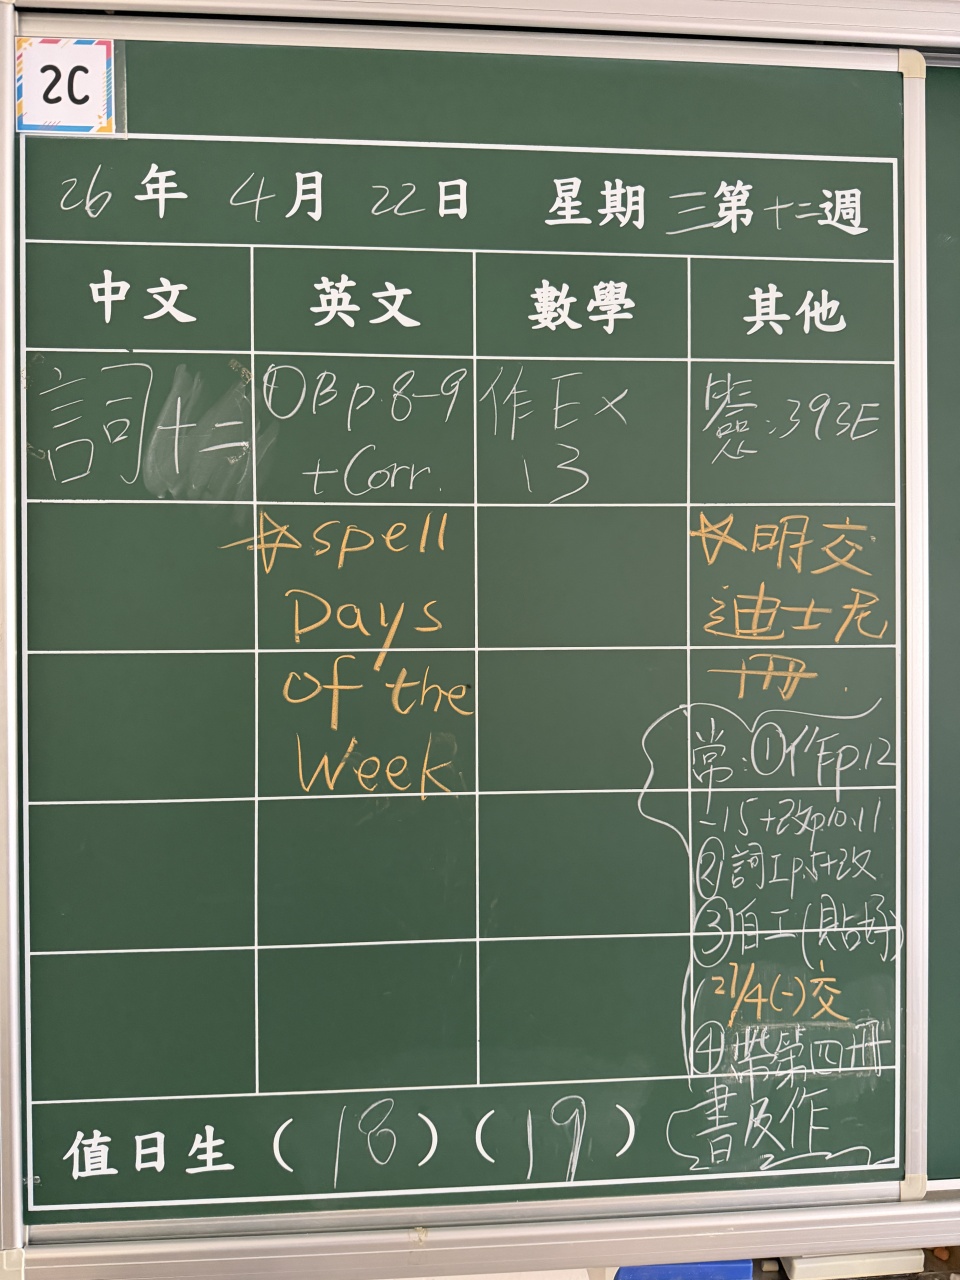 2C
26年 4月 22日 星期三 第十二週
中文
詞十二
英文
①B p.8-9
+Corr.
☆spell
Days
of the
Week
數學
作Ex
13
其他
:393E
☆明交
迪士尼
冊.
常:①作Ep.12
-15+改p10.11
②詞Ip.5+改
③自工(貼好)
(27/4(一)交
④帶第四冊
書及作
值日生(18)(19)